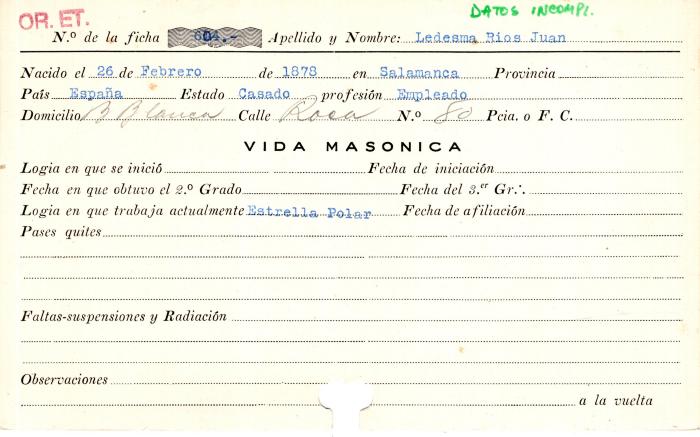 DATOS INCOMPL.
OR. ET.
N.º de la ficha 604.- Apellido y Nombre: Ledesma Rios Juan
Nacido el 26 de Febrero de 1878 en Salamanca Provincia
País España Estado Casado profesión Empleado
Domicilio B Blanca Calle Roca N.º 80 Pcia. o F. C.
VIDA MASONICA
Logia en que se inició Fecha de iniciación
Fecha en que obtuvo el 2.º Grado Fecha del 3.er Gr∴
Logia en que trabaja actualmente Estrella Polar Fecha de afiliación
Pases quites
Faltas-suspensiones y Radiación
Observaciones
a la vuelta